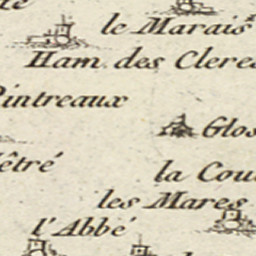 le Marais
Ham des Cleres
Pintreaux
Glos
la Cou
les Mares
l'Abbé